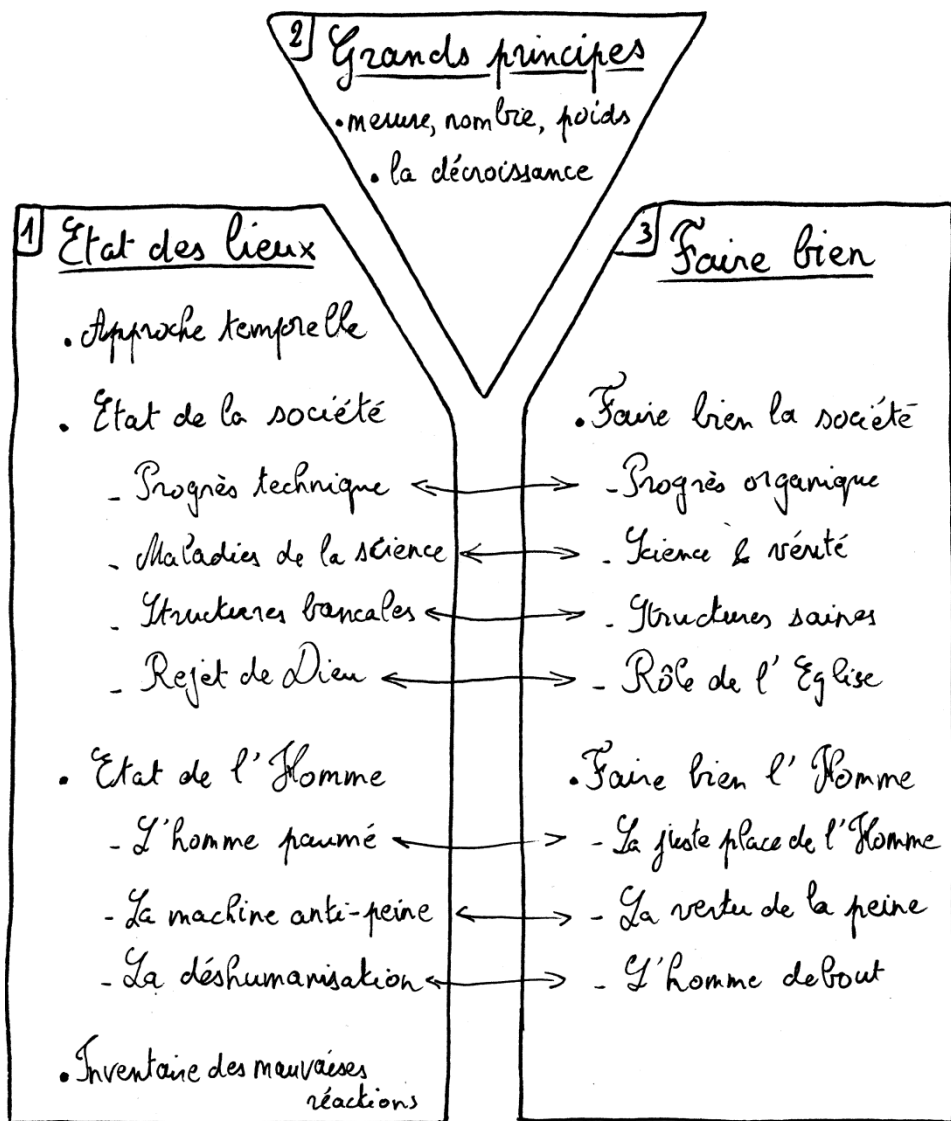 2
Grands principes
• mesure, nombre, poids
• la décroissance
1
Etat des lieux
• Approche temporelle
• Etat de la société
- Progrès technique
- Maladies de la science
- Structures bancales
- Rejet de Dieu
• Etat de l'Homme
- L'homme paumé
- La machine anti-peine
- La déshumanisation
• Inventaire des mauvaises
réactions
3
Faire bien
• Faire bien la société
- Progrès organique
- Science & vérité
- Structures saines
- Rôle de l'Eglise
• Faire bien l'Homme
- La juste place de l'Homme
- La vertu de la peine
- L'homme debout